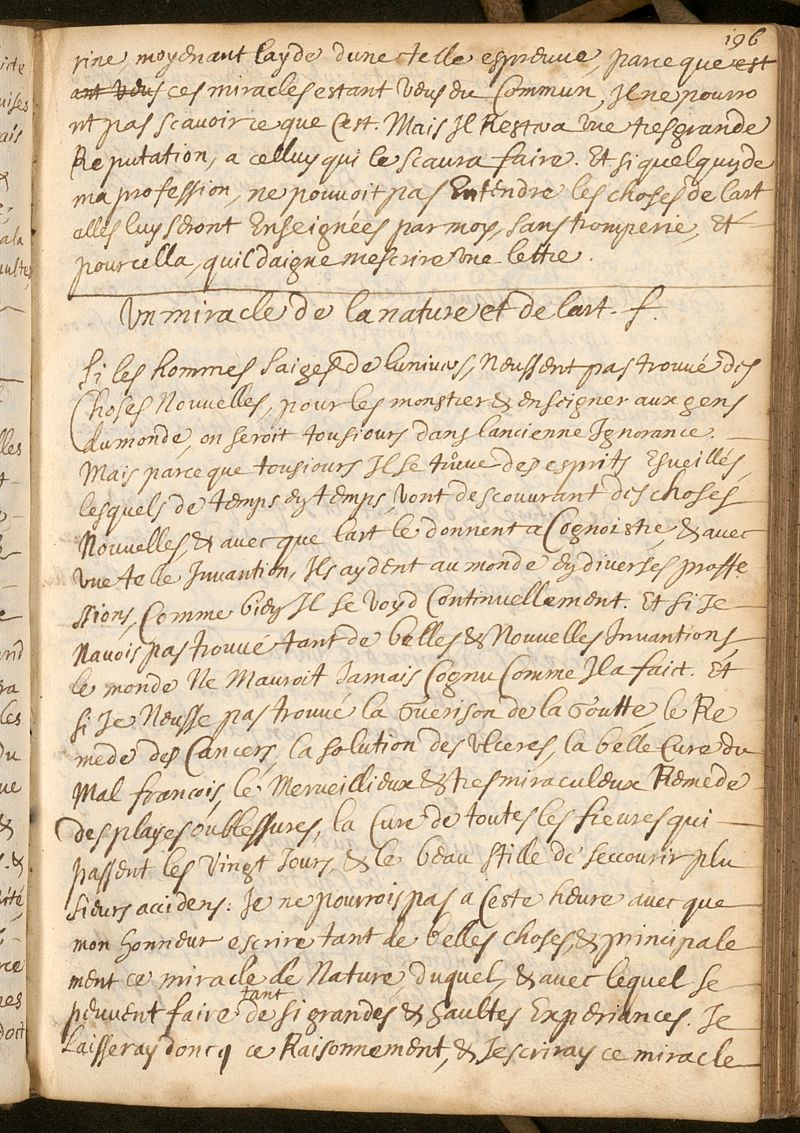 196
rine moyenant layde dune telle espreuve, parce que est
ant veus ces miracles estant veus du Commun, Il ne pourro
nt pas scavoir ce que C'est. Mais Il Restera vne tres grande
Reputation, a celluy qui le scaura faire. Et si quelquy de
ma profession, ne pouvoit pas Entendre les choses de lart
elles luy seront Enseignées par moy, sans tromperie, Et
pour cella, quil daigne mescrire vne lettre.
Un miracle de la nature et de lart. f.
Si les hommes saiges de lunivers, Neussent pas trouvé des
Choses Nouvelles, pour les monstrer & enseigner aux gens
du monde, on seroit tousiours dans lancienne Ignorance.
Mais parce que tousiours Il se trúve des esprits Esveillés,
lesquels de temps en temps, vont descouvrant des choses
Nouvelles, & avec que lart le donnent a Cognoistre, & avec
vne telle Invantion, Ils aydent au monde en diverses proffe
ssions, Comme bien Il se voyd Continuellement. Et si Je
Navois pas trouvé tant de belles & Nouvelles Invantions,
le monde Ne Mauroit Jamais Cognu Comme Il a faict. Et
si Je Neusse pas trouvé la Guerison de la Goutte, le Re
mede des Cancers, la solution des vlceres, la belle Cure du
Mal francois, le Merveillieux & tres miraculeux Remede
des playes ou blessures, la Cure de toutes les fieures qui
passent les vingt Jours, & le beau stille de seccourir plu
sieurs accidens: Je ne pourrois pas a Ceste heure avec que
mon Honneur escrire tant de belles choses, & principale
ment ce miracle de Nature, duquel, & avec lequel se
peuvent faire tant de si grandes & haultes Experiances. Je
Laisseray doncq ce Raisonnement, & Jescriray ce miracle